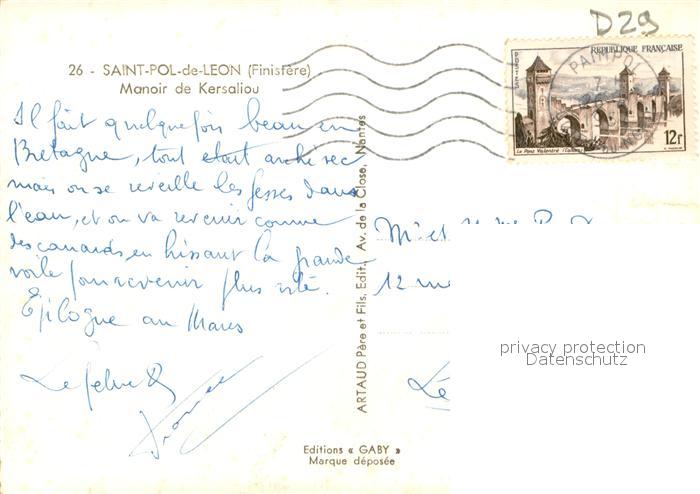 D29
26 - SAINT-POL-de-LEON (Finistère)
Manoir de Kersaliou
REPUBLIQUE FRANÇAISE
PAIMPOL
Le Pont Valentré (Cahors)
12f
Il fait quelquefois beau en
Bretagne, tout était archi sec
mais on se réveille les fesses dans
l'eau, et on va revenir comme
des canards, en hissant la grande
voile pour revenir plus vite.
Epilogue au Mans
ARTAUD Père et Fils, Edit., Av. de la Close, Nantes
Mr et
12
privacy protection
Datenschutz
Editions « GABY »
Marque déposée